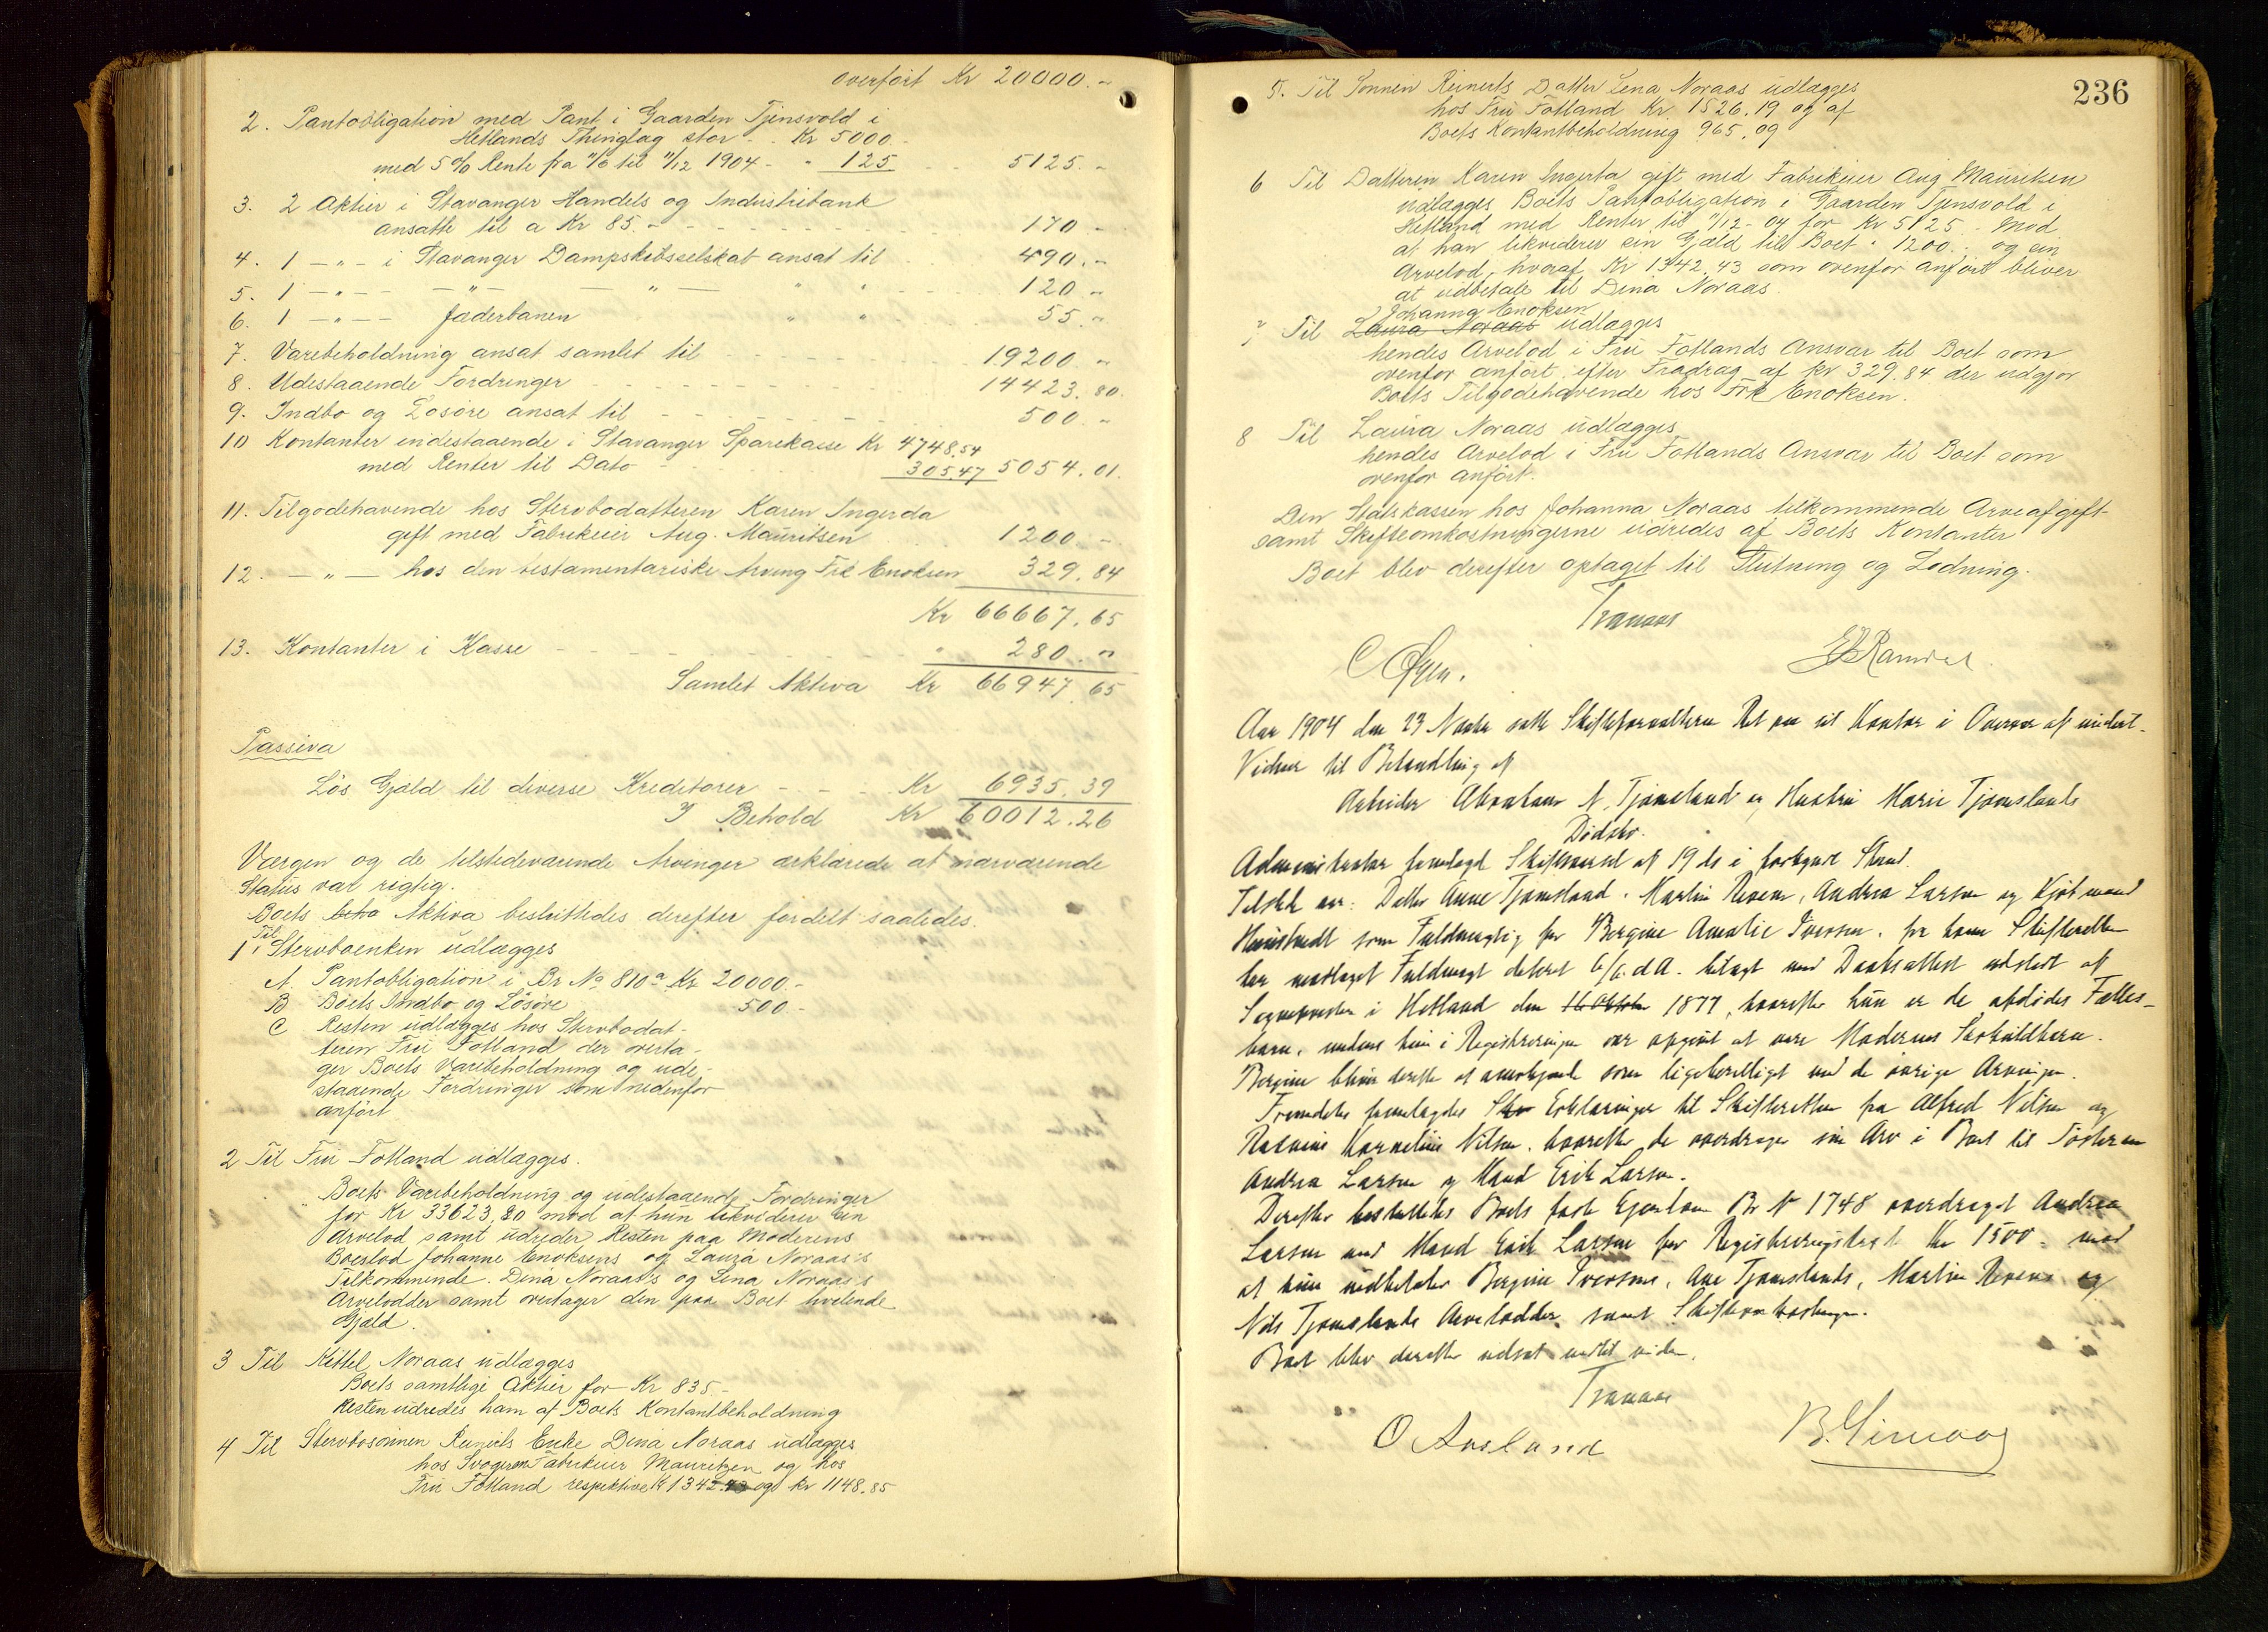 overført Kr 20000.-
2. Pantobligation med Pant i Gaarden Tjensvold i
Hetlands Thinglag stor - - Kr 5000.-
med 5 % Rente fra 11/6 til 11/12 1904 - " 125 - - 5125.-
3. 2 Aktier i Stavanger Handels og Industribank
ansatte til a Kr 85.- - - - - - - 170 -
4. 1 -"- i Stavanger Dampskibsselskab ansat til 490.-
5. 1 -"- -"- -"- " " - - 120 -
6. 1 -"- Jæderbanen " " - - 55.-
7. Varebeholdning ansat samlet til - - - - 19200 -
8. Udestaaende Fordringer - - - - 14423.80.
9. Indbo og Løsøre ansat til - - - - 500.-
10 Kontanter indestaaende i Stavanger Sparekasse Kr 4748.54
med Renter til Dato - - - 305.47 5054.01.
11. Tilgodehavende hos Stervbodatteren Karen Ingerda
gift med Fabrikeier Aug. Mauritsen . . 1200 -
12. -"- hos den testamentariske Arving Frk Enoksen 329.84
Kr 66667.65
13. Kontanter i Kasse - - - - - " 280.-
Samlet Aktiva Kr 66947.65
Passiva
Løs Gjæld til diverse Kreditorer - - - Kr 6935.39
I Behold Kr 60012.26
Værgen og de tilstedeværende Arvinger erklærede at nærværende
Status var rigtig.
Boets Aktiva besluttedes derefter fordelt saaledes.
1. Til Stervboenken udlægges
A. Pantobligation i Br No 810a Kr 20000.-
B Boets Indbo og Løsøre 500 -
C Resten udlægges hos Stervbodat-
teren Fru Fotland der overta-
ger Boets Varebeholdning og ude-
staaende Fordringer som nedenfor
anført
2 Til Fru Fotland udlægges.
Boets Varebeholdning og udestaaende Fordringer
for Kr 33623.80 mod at hun likviderer sin
Arvelod samt udreder Resten paa Moderens
Boeslod Johanne Enoksens og Laura Noraas's
Tilkommende. Dina Noraas's og Lena Noraas's
Arvelodder samt overtager den paa Boet hvilende
Gjæld.
3 Til Kittel Noraas udlægges
Boets samtlige Aktier for Kr 835.-
Resten udredes ham af Boets Kontantbeholdning
4 Til Stervbosønnen Reinerts Enke Dina Noraas udlægges
hos Svogeren Fabrikeier Mauritzen og hos
Fru Fotland respektive K 1342.43 og kr 1148.85
236
5. Til Sønnen Reinerts Datter Lena Noraas udlægges
hos Fru Fotland Kr 1526.19 og af
Boets Kontantbeholdning 965.09
6 Til Datteren Karen Ingerta gift med Fabrikeier Aug Mauritsen
udlægges Boets Pantobligation i Gaarden Tjensvold i
Hetland med Renter til 11/12 - 04 for Kr 5125 - Mod
at han likviderer sin Gjæld till Boet " 1200.- og sin
Arvelod, hvoraf Kr 1342.43 som ovenfor anført bliver
at udbetale til Dina Noraas.
Johanna Enoksen
7 Til Laura Noraas udlægges
hendes Arvelod i Fru Fotlands Ansvar til Boet som
ovenfor anført efter Fradrag af kr 329.84 der udgjør
Boets Tilgodehavende hos Frk Enoksen.
8 Til Laura Noraas udlægges
hendes Arvelod i Fru Fotlands Ansvar til Boet som
ovenfor anført.
Den Statskassen hos Johanna Noraas tilkommende Arveafgift
samt Skifteomkostningerne udredes af Boets Kontanter
Boet blev derefter optaget til Slutning og Lodning.
Tranaas
Aar 1904 den 23 Novbr satte Skifteforvalteren Ret paa sit Kontor i Overvær af undert.
Vidner til Behandling af
Arbeider Abraham N. Tjomsland og Hustru Marie Tjomslands
Dødsbo.
Administrator fremlagde Skiftevarsel af 19 ds i forkyndt Stand.
Tilstede var: Datter Anne Tjomsland, Martin Reven, Andrea Larsen og Kjøbmand
som Fuldmægtig for Bergine Amalie Iversen, fra hvem Skifteretten
har modtaget Fuldmagt dateret 6/6 d A. bilagt med Daabsattest udstedt af
Sognepresten i Hetland den 1877, hvorefter hun er de afdødes Fælles-
barn, medens hun i Registreringen var opgivet at være Moderens Særkuldbarn.
Bergine bliver derefter at anerkjende som ligeberettiget med de øvrige Arvinger.
Fremdeles fremlagdes Erklæringer til Skifteretten fra Alfred Nilsen og
Kornelius Nilsen, hvorefter de overdrager sin Arv i Boet til Søsteren
Andrea Larsen og Mand Erik Larsen.
Derefter besluttedes Boets faste Eiendom Br N 1748 overdraget Andrea
Larsen med Mand Erik Larsen for Registreringstaxt Kr 1500 - mod
at hun udbetaler Bergine Iversens, Ane Tjomslands, Martin Revens og
Nils Tjomslands Arvelodder samt Skifteomkostninger.
Boet blev derefter udsat indtil videre.
Tranaas
O Aasland